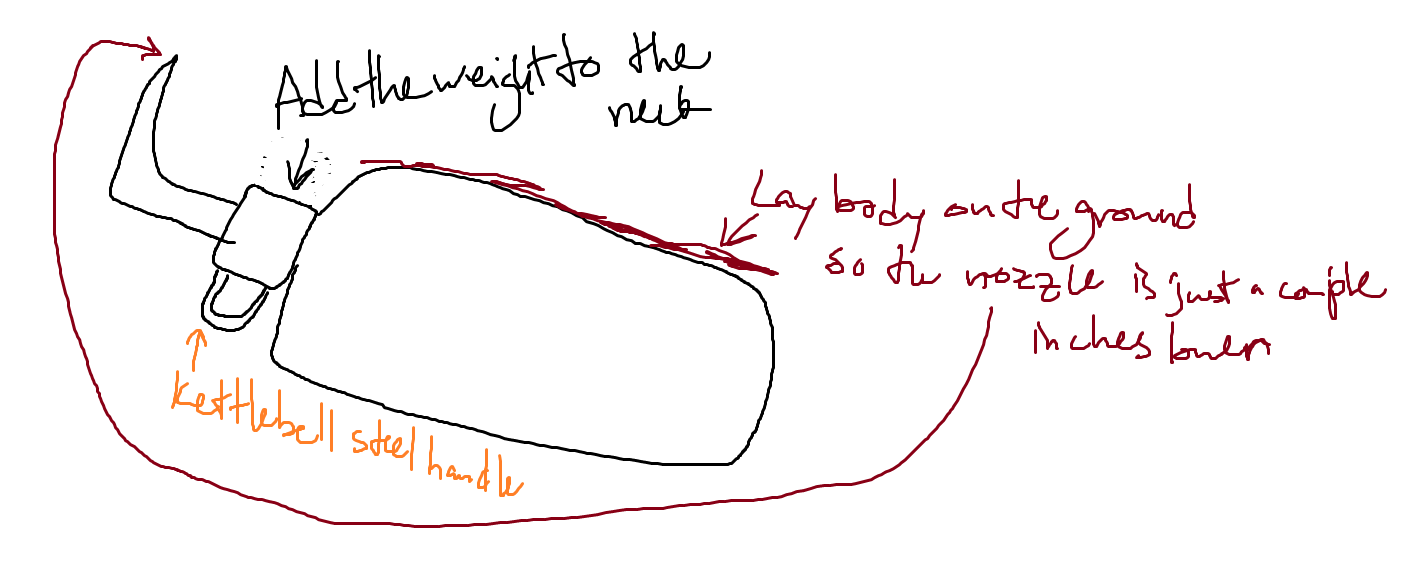 Add the weight to the
neck
Lay body on the ground
so the nozzle is just a couple
inches lower
Kettlebell steel handle